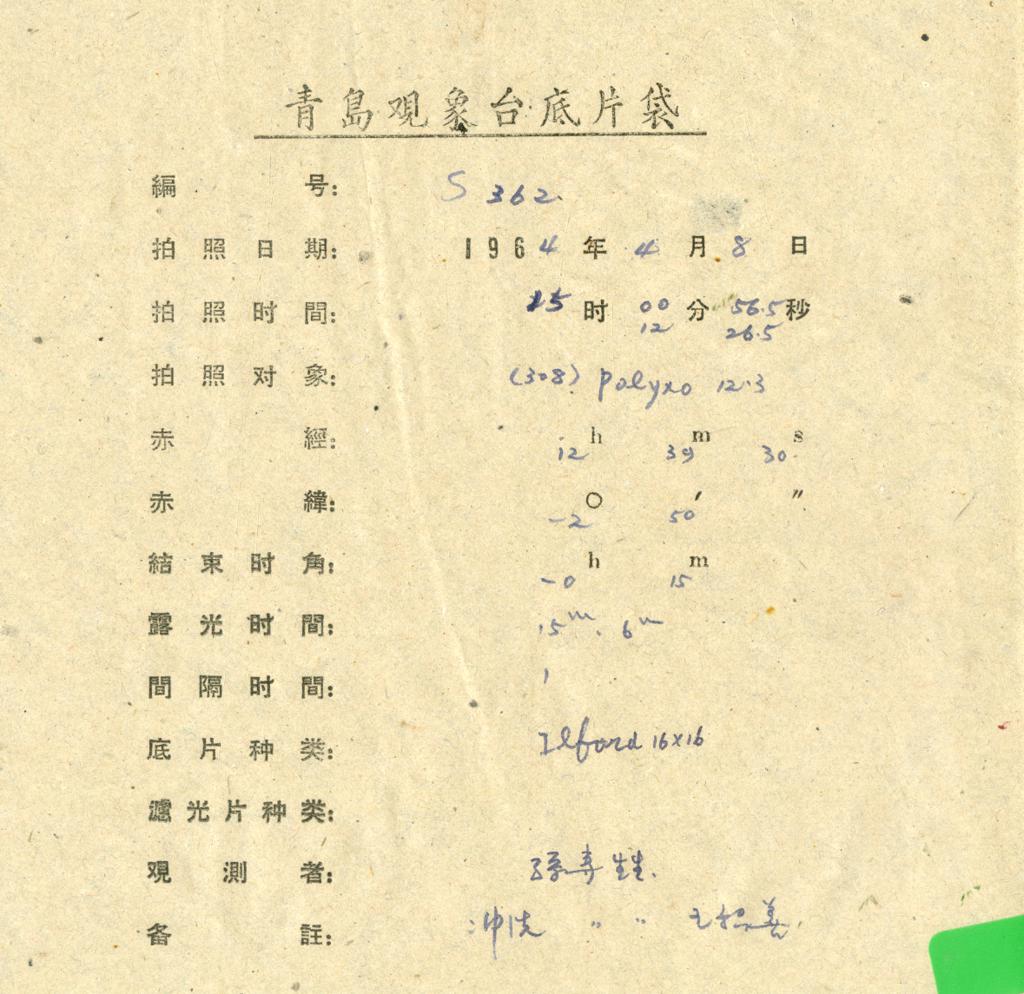 青島观象台底片袋
編号: S 362.
拍照日期: 1964年4月8日
拍照时間: 15时00分56.5秒
12 26.5
拍照对象: (308) Polyxo 12.3
赤經: 12h 39m 30s
赤緯: -2° 50′ ″
結束时角: -0h 15m
露光时間: 15m. 6m
間隔时間: 1
底片种类: Ilford 16×16
濾光片种类:
观測者: 孫寿
备註: 冲洗 〃 〃 王